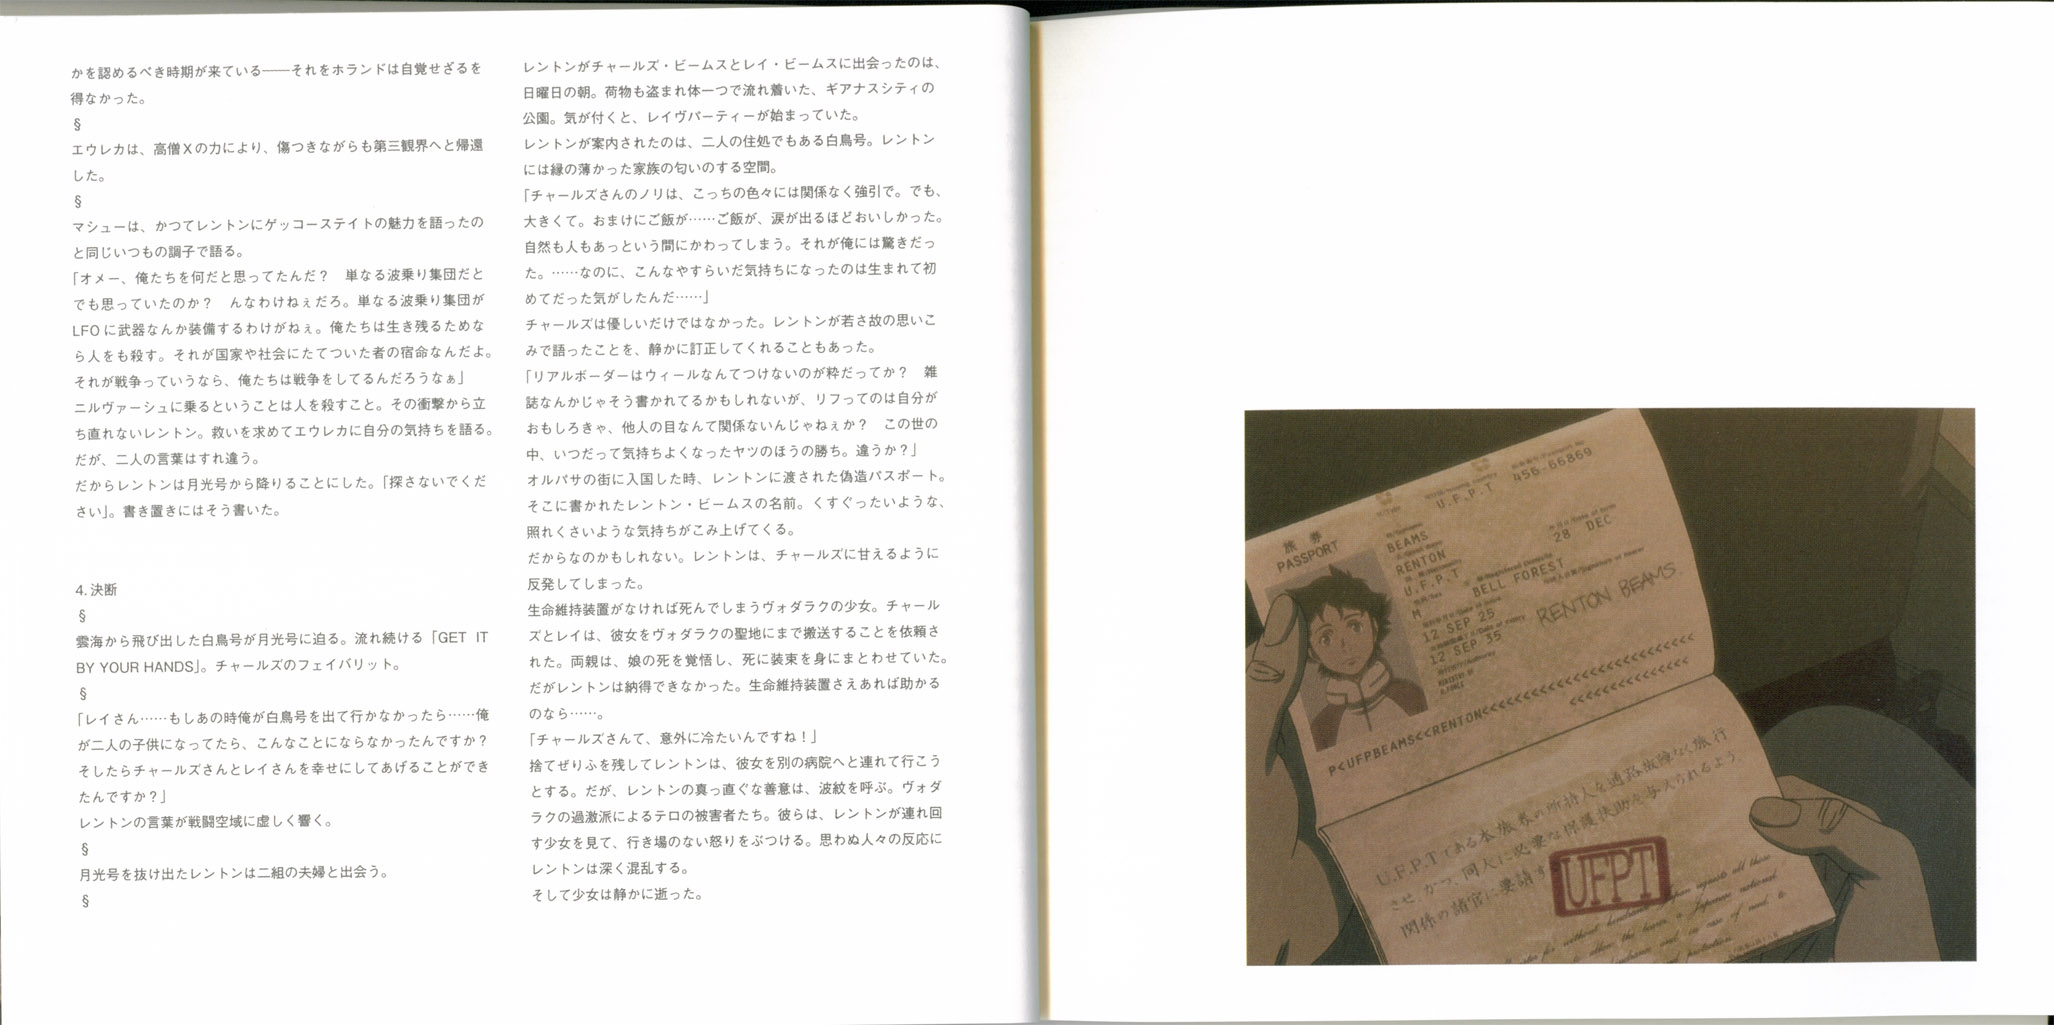 かを認めるべき時期が来ている――それをホランドは自覚せざるを
得なかった。
§
エウレカは、高僧Xの力により、傷つきながらも第三観界へと帰還
した。
§
マシューは、かつてレントンにゲッコーステイトの魅力を語ったの
と同じいつもの調子で語る。
「オメー、俺たちを何だと思ってたんだ？　単なる波乗り集団だと
でも思っていたのか？　んなわけねぇだろ。単なる波乗り集団が
LFOに武器なんか装備するわけがねぇ。俺たちは生き残るためな
ら人をも殺す。それが国家や社会にたてついた者の宿命なんだよ。
それが戦争っていうなら、俺たちは戦争をしてるんだろうなぁ」
ニルヴァーシュに乗るということは人を殺すこと。その衝撃から立
ち直れないレントン。救いを求めてエウレカに自分の気持ちを語る。
だが、二人の言葉はすれ違う。
だからレントンは月光号から降りることにした。「探さないでくだ
さい」。書き置きにはそう書いた。
4. 決断
§
雲海から飛び出した白鳥号が月光号に迫る。流れ続ける「GET IT
BY YOUR HANDS」。チャールズのフェイバリット。
§
「レイさん……もしあの時俺が白鳥号を出て行かなかったら……俺
が二人の子供になってたら、こんなことにならなかったんですか？
そしたらチャールズさんとレイさんを幸せにしてあげることができ
たんですか？」
レントンの言葉が戦闘空域に虚しく響く。
§
月光号を抜け出たレントンは二組の夫婦と出会う。
§
レントンがチャールズ・ビームスとレイ・ビームスに出会ったのは、
日曜日の朝。荷物も盗まれ体一つで流れ着いた、ギアナスシティの
公園。気が付くと、レイヴパーティーが始まっていた。
レントンが案内されたのは、二人の住処でもある白鳥号。レントン
には縁の薄かった家族の匂いのする空間。
「チャールズさんのノリは、こっちの色々には関係なく強引で。でも、
大きくて。おまけにご飯が……ご飯が、涙が出るほどおいしかった。
自然も人もあっという間にかわってしまう。それが俺には驚きだっ
た。……なのに、こんなやすらいだ気持ちになったのは生まれて初
めてだった気がしたんだ……」
チャールズは優しいだけではなかった。レントンが若さ故の思いこ
みで語ったことを、静かに訂正してくれることもあった。
「リアルボーダーはウィールなんてつけないのが粋だってか？　雑
誌なんかじゃそう書かれてるかもしれないが、リフってのは自分が
おもしろきゃ、他人の目なんて関係ないんじゃねぇか？　この世の
中、いつだって気持ちよくなったヤツのほうの勝ち。違うか？」
オルバサの街に入国した時、レントンに渡された偽造パスポート。
そこに書かれたレントン・ビームスの名前。くすぐったいような、
照れくさいような気持ちがこみ上げてくる。
だからなのかもしれない。レントンは、チャールズに甘えるように
反発してしまった。
生命維持装置がなければ死んでしまうヴォダラクの少女。チャール
ズとレイは、彼女をヴォダラクの聖地にまで搬送することを依頼さ
れた。両親は、娘の死を覚悟し、死に装束を身にまとわせていた。
だがレントンは納得できなかった。生命維持装置さえあれば助かる
のなら……。
「チャールズさんて、意外に冷たいんですね！」
捨てぜりふを残してレントンは、彼女を別の病院へと連れて行こう
とする。だが、レントンの真っ直ぐな善意は、波紋を呼ぶ。ヴォダ
ラクの過激派によるテロの被害者たち。彼らは、レントンが連れ回
す少女を見て、行き場のない怒りをぶつける。思わぬ人々の反応に
レントンは深く混乱する。
そして少女は静かに逝った。
旅券
PASSPORT
U.F.P.T
456-66869
BEAMS
RENTON
U.F.P.T
28 DEC
M
BELL FOREST
12 SEP 25
12 SEP 35
RENTON BEAMS
P<UFPBEAMS<<RENTON<<<<<<<<<<<<<<<<<<<<
U.F.P.Tである本旅券の所持人を通路故障なく旅行
させ、かつ、同人に必要な保護扶助を与えられるよう、
関係の諸官に要請す
UFPT